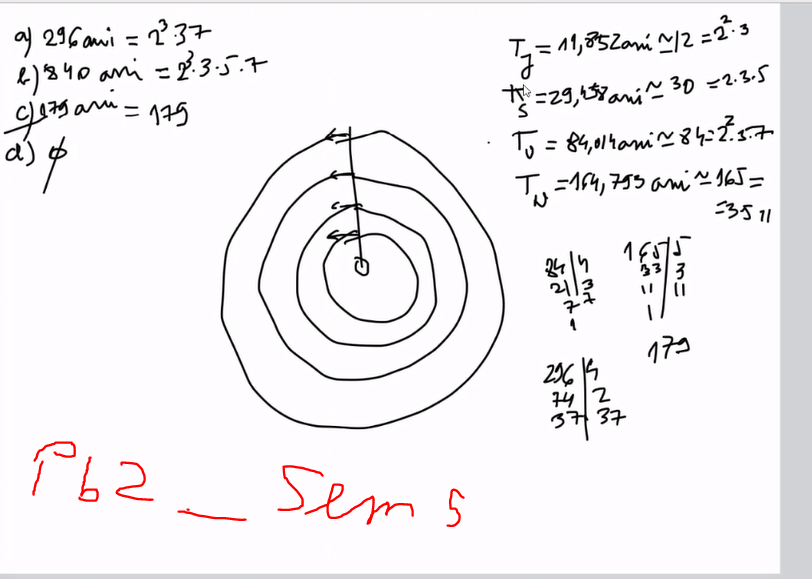 a) 296 ani = 2³·37
b) 840 ani = 2³·3·5·7
c) 179 ani = 179
d) ϕ
T_J = 11,852 ani ≃ 12 = 2²·3
T_S = 29,458 ani ≃ 30 = 2·3·5
T_U = 84,014 ani ≃ 84 = 2²·3·7
T_N = 164,793 ani ≃ 165 =
= 3 5 11
84 | 4
21 | 3
7 | 7
1
165 | 5
33 | 3
11 | 11
1 |
179
296 | 4
74 | 2
37 | 37
Pb2 _ Sem 5